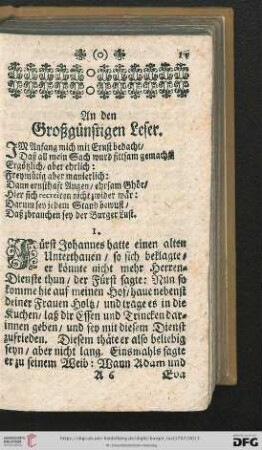 (o)
An den
Großgünstigen Leser.
IM Anfang mich mit Ernst bedacht/
Daß all mein Sach wurd sittsam gemacht
Ergötzlich/ aber ehrlich:
Freymütig aber manierlich:
Dann ernsthafft Augen/ ehrsam
Hier sich recreiren nicht zwider wär:
Darum sey jedem Stand bewust/
Daß zbrauchen sey der Burger Lust.
1.
Fürst Johannes hatte einen alten
Unterthanen/ so sich beklagte/
er könnte nicht mehr Herren-
Dienste thun/ der Fürst sagte: Nun so
komme hie auf meinen Hof/ haue nebenst
deiner Frauen Holtz/ und trage es in die
Kuchen/ laß dir Essen und Trincken dar-
innen geben/ und sey mit diesem Dienst
zufrieden. Diesem thäte er also beliebig
seyn/ aber nicht lang. Einsmahls sagte
er zu seinem Weib: Wann Adam und
A 6 Eva
DFG